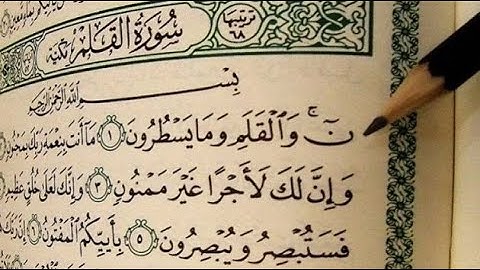 ترتيبها ٦٨
سُورَةُ القَلَمِ مكية
بِسْمِ اللَّهِ الرَّحْمَٰنِ الرَّحِيمِ
نٓ ۚ وَٱلْقَلَمِ وَمَا يَسْطُرُونَ ۝١ مَآ أَنتَ بِنِعْمَةِ رَبِّكَ بِمَجْنُونٍ
وَإِنَّ لَكَ لَأَجْرًا غَيْرَ مَمْنُونٍ ۝٣ وَإِنَّكَ لَعَلَىٰ خُلُقٍ عَظِيمٍ
فَسَتُبْصِرُ وَيُبْصِرُونَ ۝٥ بِأَييِّكُمُ ٱلْمَفْتُونُ ۝٦ إِنَّ رَبَّكَ